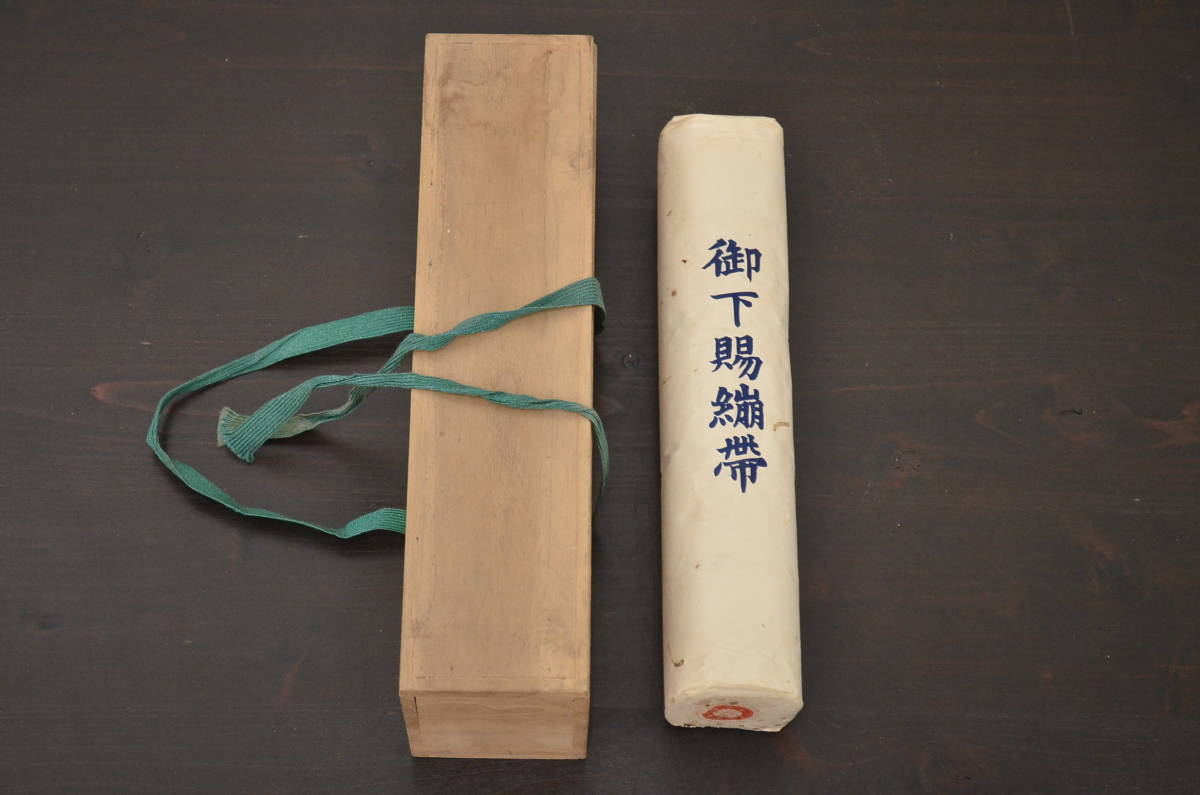 御下賜繃帯